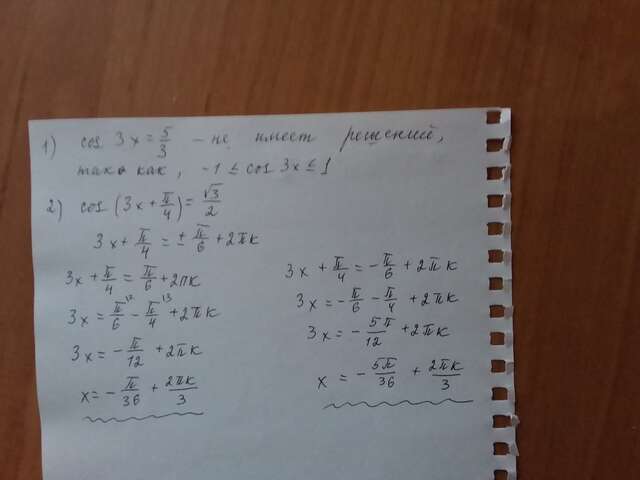 1) cos 3x = 5/3 – не имеет решений,
так как, -1 ≤ cos 3x ≤ 1
2) cos (3x + π/4) = √3/2
3x + π/4 = ± π/6 + 2πк
3x + π/4 = π/6 + 2πк
3x = π/6 - π/4 + 2πк
3x = - π/12 + 2πк
x = - π/36 + 2πк/3
3x + π/4 = - π/6 + 2πк
3x = - π/6 - π/4 + 2πк
3x = - 5π/12 + 2πк
x = - 5π/36 + 2πк/3